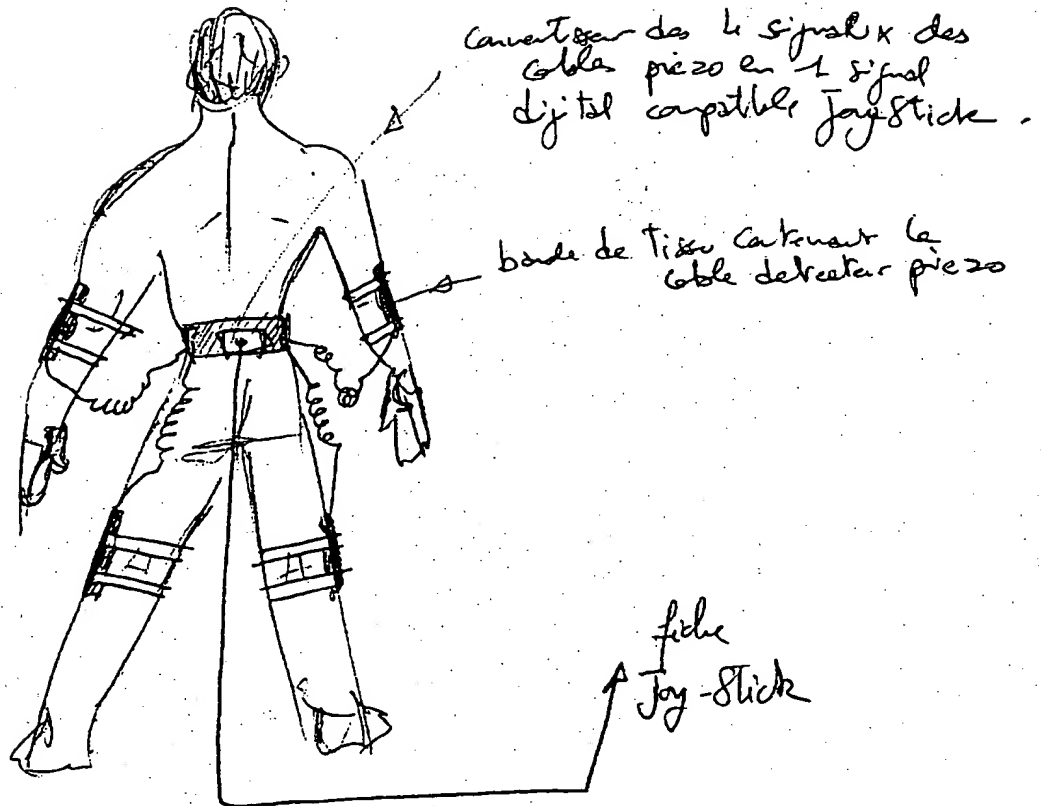 convertisseur des 4 signalux des
cables piezo en 1 signal
digital compatible Joy-Stick.
bande de Tissu Contenant le
cable detecteur piezo
fiche
Joy-Stick